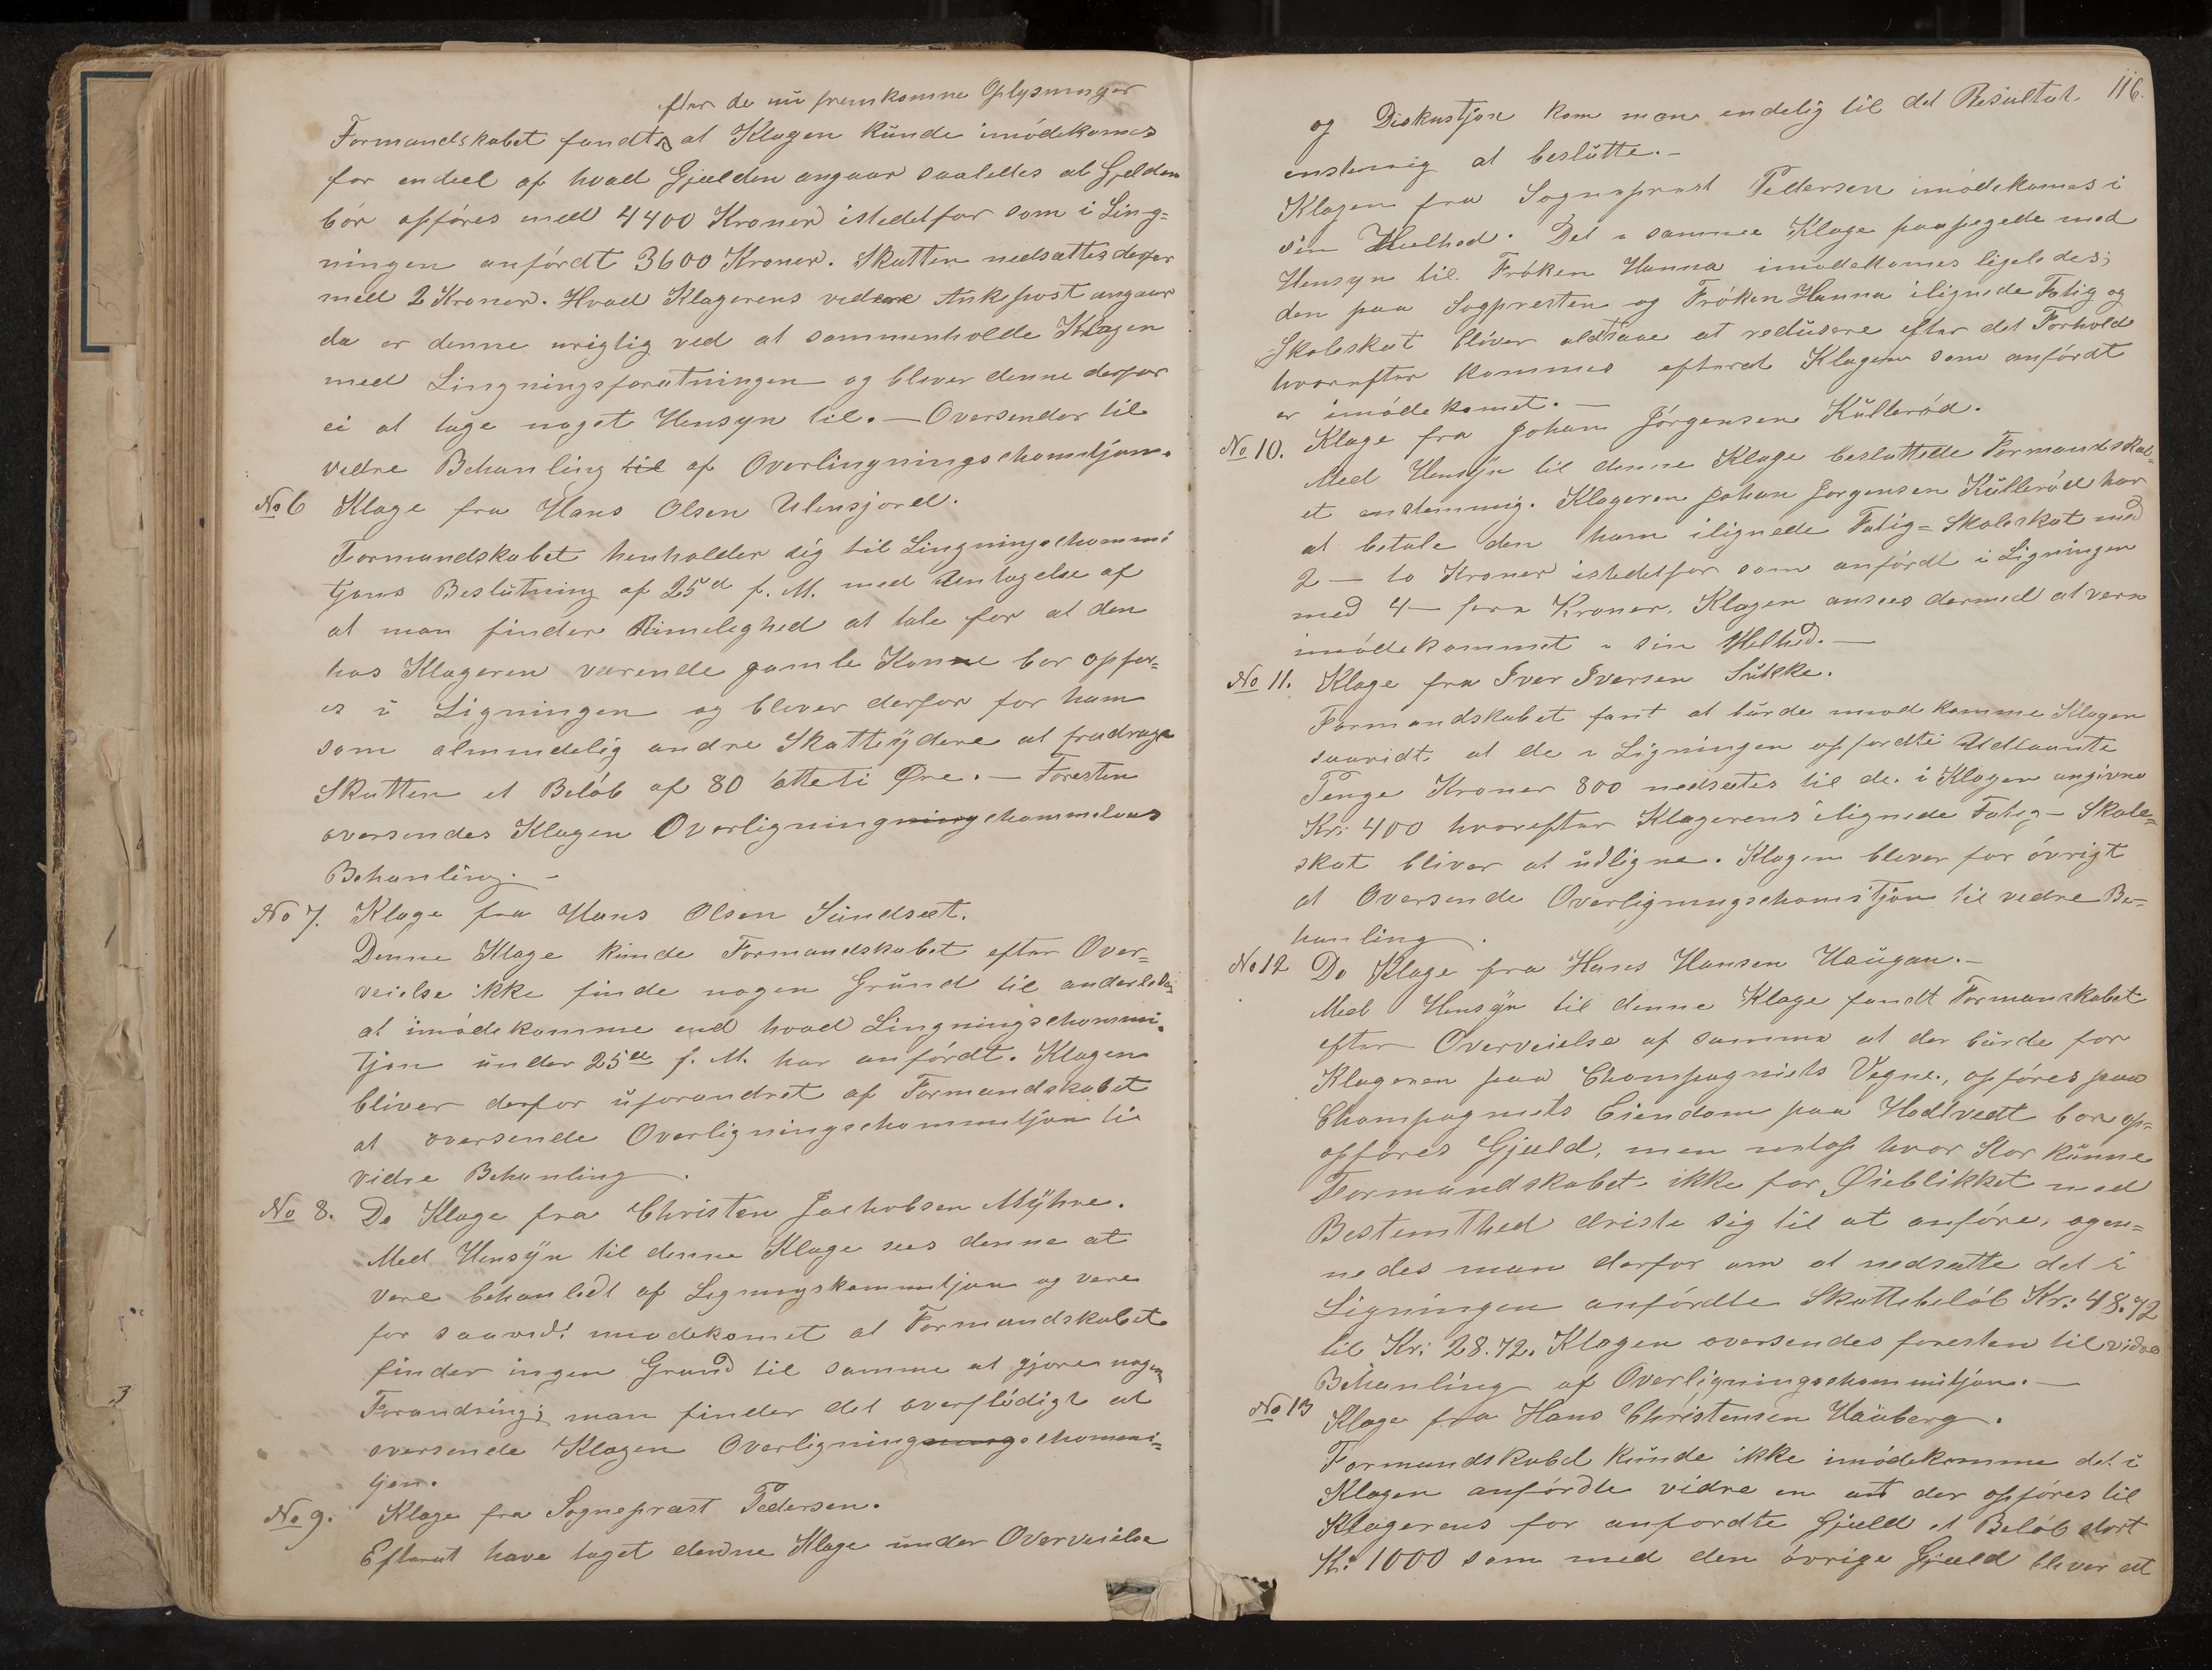 efter de nu fremkomne Oplysninger
Formandskabet fandt at Klagen kunde imödekomes
for endeel af hvad Gjælden angaar saaledes at Gjelden
bör opföres med 4400 Kroner istedetfor som i Ling=
ningen anfördt 3600 Kroner. Skatten nedsættes derfor
med 2 Kroner. Hvad Klagerens vedere Ankepost angaar
da er denne urigtig ved at sammenholde Klagen
med Lingningsforretningen og bliver denne derfor
ei at tage noget Hensyn til. — Oversendes til
vedre Behanling til af Overlingningschomitjon.
No 6 Klage fra Hans Olsen Ulensjord.
Formandskabet henholder sig til Lingningschommi
tjons Beslutning af 25d f. M. med Untagelse af
at man finder Rimelighed at tale for at den
hos Klageren værende gamle Kone bor opfor=
es i Ligningen og bliver derfor for ham
som almindelig andre Skatteydere at fradrage
Skatten et Belöb af 80 otteti Øre. — Foresten
oversendes Klagen Overligningningschommitions
Behanling. -
No 7. Klage fra Hans Olsen Sundset.
Denne Klage kunde Formandskabet efter Over=
veielse ikke finde nogen Grund til anderledes
at imödekomme end hvad Lingningschommi.
tjon under 25de f. M. har anfördt. Klagen
bliver derfor uforandret af Formandskabet
at oversende Overligningschommitjon til
vidre Behanling.
No 8. Do Klage fra Christen Jachobsen Myhre.
Med Hensyn til denne Klage sees denne at
vere behanledt af Ligningskommitjon og vere
for saavidt imodekomet at Formandskabet
finder ingen Grund til samme at gjøre nogen
Forandring; man finder det overflödigt at
oversende Klagen Overligningningschommi=
tjon.
No 9. Klage fra Sogneprast Pedersen.
Efterat have taget denne Klage under Overveielse
116.
og Diskustjon kom man endelig til det Resultat
enstemig at beslutte. -
Klagen fra Sogneprast Pedersen imödekomes i
sin Heelhed. Det i samme Klage paapegede med
Hensyn til Fröken Hanna imödekomes ligeledes;
den paa Sogpresten og Fröken Hanna ilignede Fatig og
Skoleskat bliver altsaa at redusere efter det Forhold
hvorefter kommes efterat Klagen som anfördt
er imödekomet. —
No 10. Klage fra Johan Jörgensen Kulleröd.
Med Hensyn til denne Klage besluttede Formandskab=
et enstemmig. Klageren Johan Jorgensen Kulleröd har
at betale den ham ilignede Fatig= Skoleskat med
2 — to Kroner istedetfor som anfördt i Ligningen
med 4 — fira Kroner. Klagen ansees dermed at vera
imödekommet i sin Helhed. —
No 11. Klage fra Iver Iversen Sukke.
Formandskabet fant at burde imodkomme Klagen
saavidt at de i Ligningen opfordte Udlaante
Penge Kroner 800 nedsættes til de i Klagen angivne
Kr: 400 hvorefter Klagerens ilignede Fatig- Skole=
skat bliver at udligne. Klagen blever for övrigt
at Oversende Overligningschomistjon til vedre Be=
hanling.
No 12 Do Klage fra Hans Hansen Haugan. -
Med Hensyn til denne Klage fandt Formanskabet
efter Overveielse af samme at der burde for
Klageren paa Chompagniets Vegne., opföres paa
Chompagniets Eiendom paa Hodtvedt bor op=
opföres Gjæld, men hvor Stor kunne
Formandskabet ikke for Øieblikket med
Bestemthed driste sig til at anföre,
nedes man derfor om at nedsætte det i
Ligningen anfördte Skattebelöb Kr: 48.72
til Kr: 28.72. Klagen oversendes foresten til vidre
Behanling af Overligningschommitjon. —
No 13 Klage fra Hans Christensen Hauberg.
Formandskabet kunde ikke imödekomme det i
Klagen anfördte vidre en at der opföres til
Klagerens for anfordte Gjæld et Belöb stort
Kr: 1000 som med den övrige Gjæld bliver at